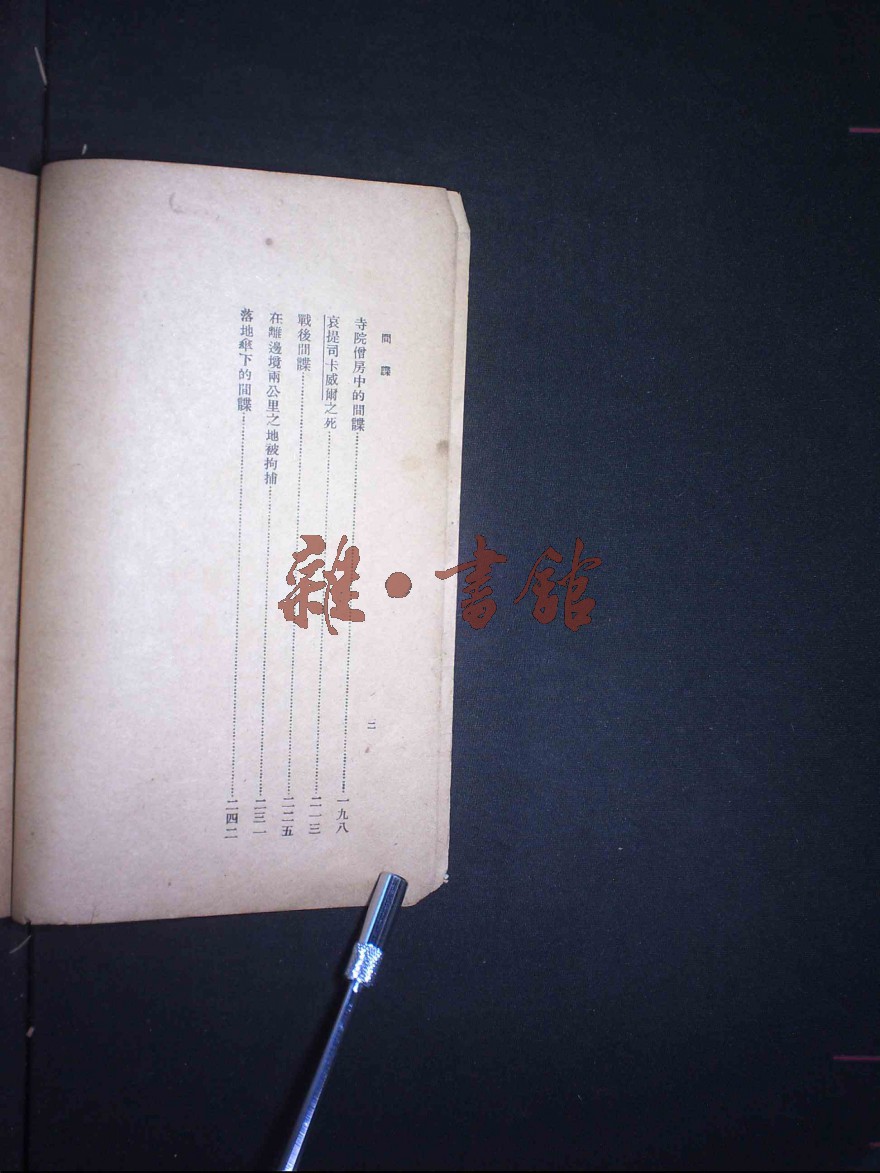 間諜
寺院僧房中的間諜…一九八
哀提司卡威爾之死…二一三
戰後間諜…二二五
在離邊境兩公里之地被拘捕…二三一
落地傘下的間諜…二四二
二
雜·書館